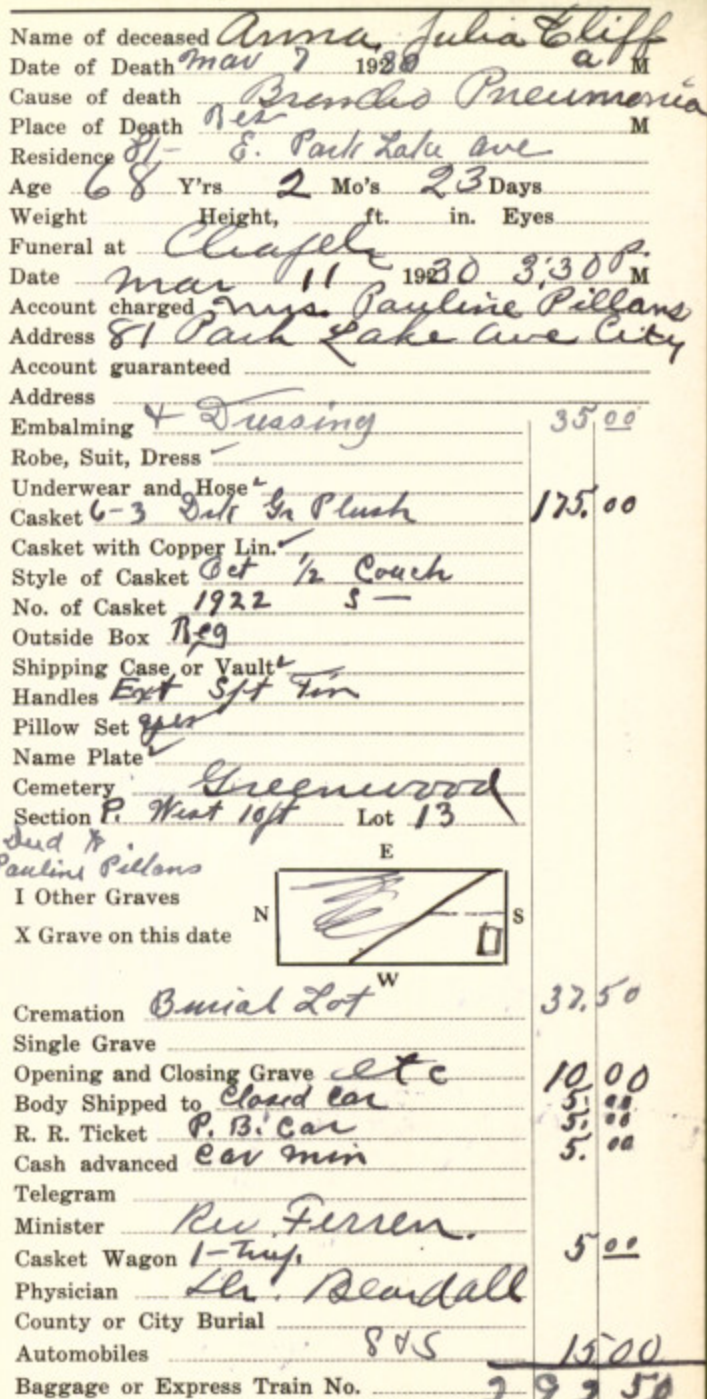 Name of deceased Anna Julia Cliff
Date of Death Mar 7 1930 a M
Cause of death Broncho Pneumonia
Place of Death Res M
Residence 81- E. Park Lake ave
Age 68 Y'rs 2 Mo's 23 Days
Weight Height, ft. in. Eyes
Funeral at Chapel
Date Mar 11 1930 3:30 P. M
Account charged Mrs. Pauline Pillans
Address 81 Park Lake Ave City
Account guaranteed
Address
Embalming & Dressing 35 00
Robe, Suit, Dress
Underwear and Hose
Casket 6-3 Drk Gr Plush 175. 00
Casket with Copper Lin.
Style of Casket Oct 1/2 Couch
No. of Casket 1922 S —
Outside Box Reg
Shipping Case or Vault
Handles Ext Sft
Pillow Set yes
Name Plate
Cemetery Greenwood
Section P. West 10ft Lot 13
Deed to
Pauline Pillans
E
I Other Graves
N S
X Grave on this date
W
Cremation Burial Lot 37.50
Single Grave
Opening and Closing Grave etc 10 00
Body Shipped to Closed Car 5. 00
R. R. Ticket P. B. Car 5. 00
Cash advanced Car min 5. 00
Telegram
Minister Rev Ferren.
Casket Wagon 1- 5 00
Physician Dr. Beardall
County or City Burial
Automobiles 8 & 5 15 00
Baggage or Express Train No. 292 50